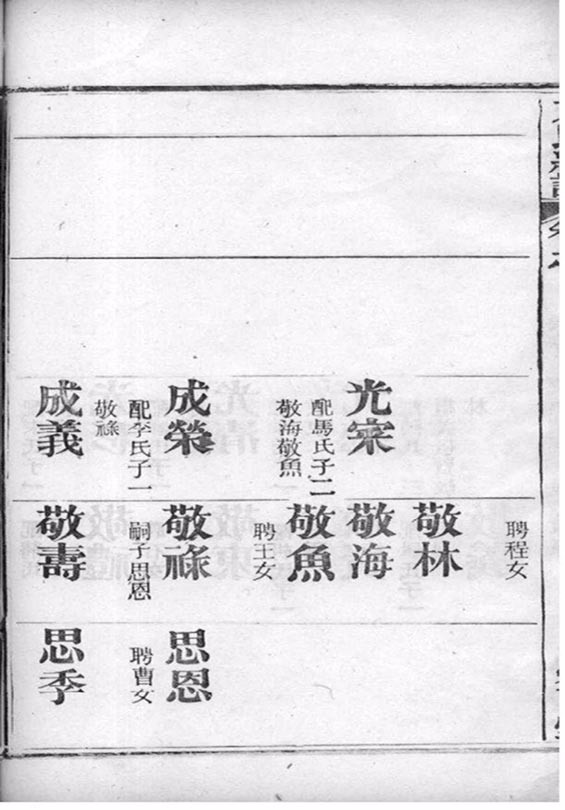 光宗
配馬氏子二
敬海敬魚
成榮
配李氏子一
敬祿
成義
聘程女
敬林
敬海
敬魚
聘王女
敬祿
嗣子思恩
敬壽
思恩
聘曹女
思季